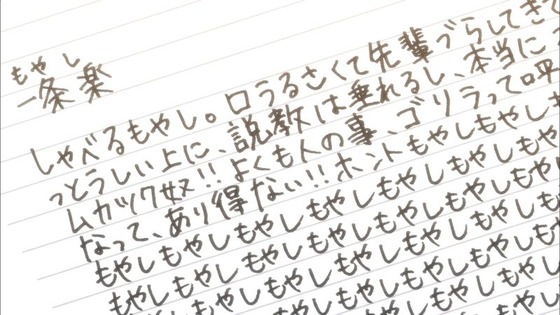 もやし
一条楽
しゃべるもやし。口うるさくて先輩づらしてきて
っとうしい上に、説教は垂れるし、本当に
ムカツク奴!!よくも人の事、ゴリラって呼
なって、あり得ない!!ホントもやしもやし
もやしもやしもやしもやしもやしもやしもやし
もやしもやしもやしもやしもやしもやし
もやしもやしもやしもやし